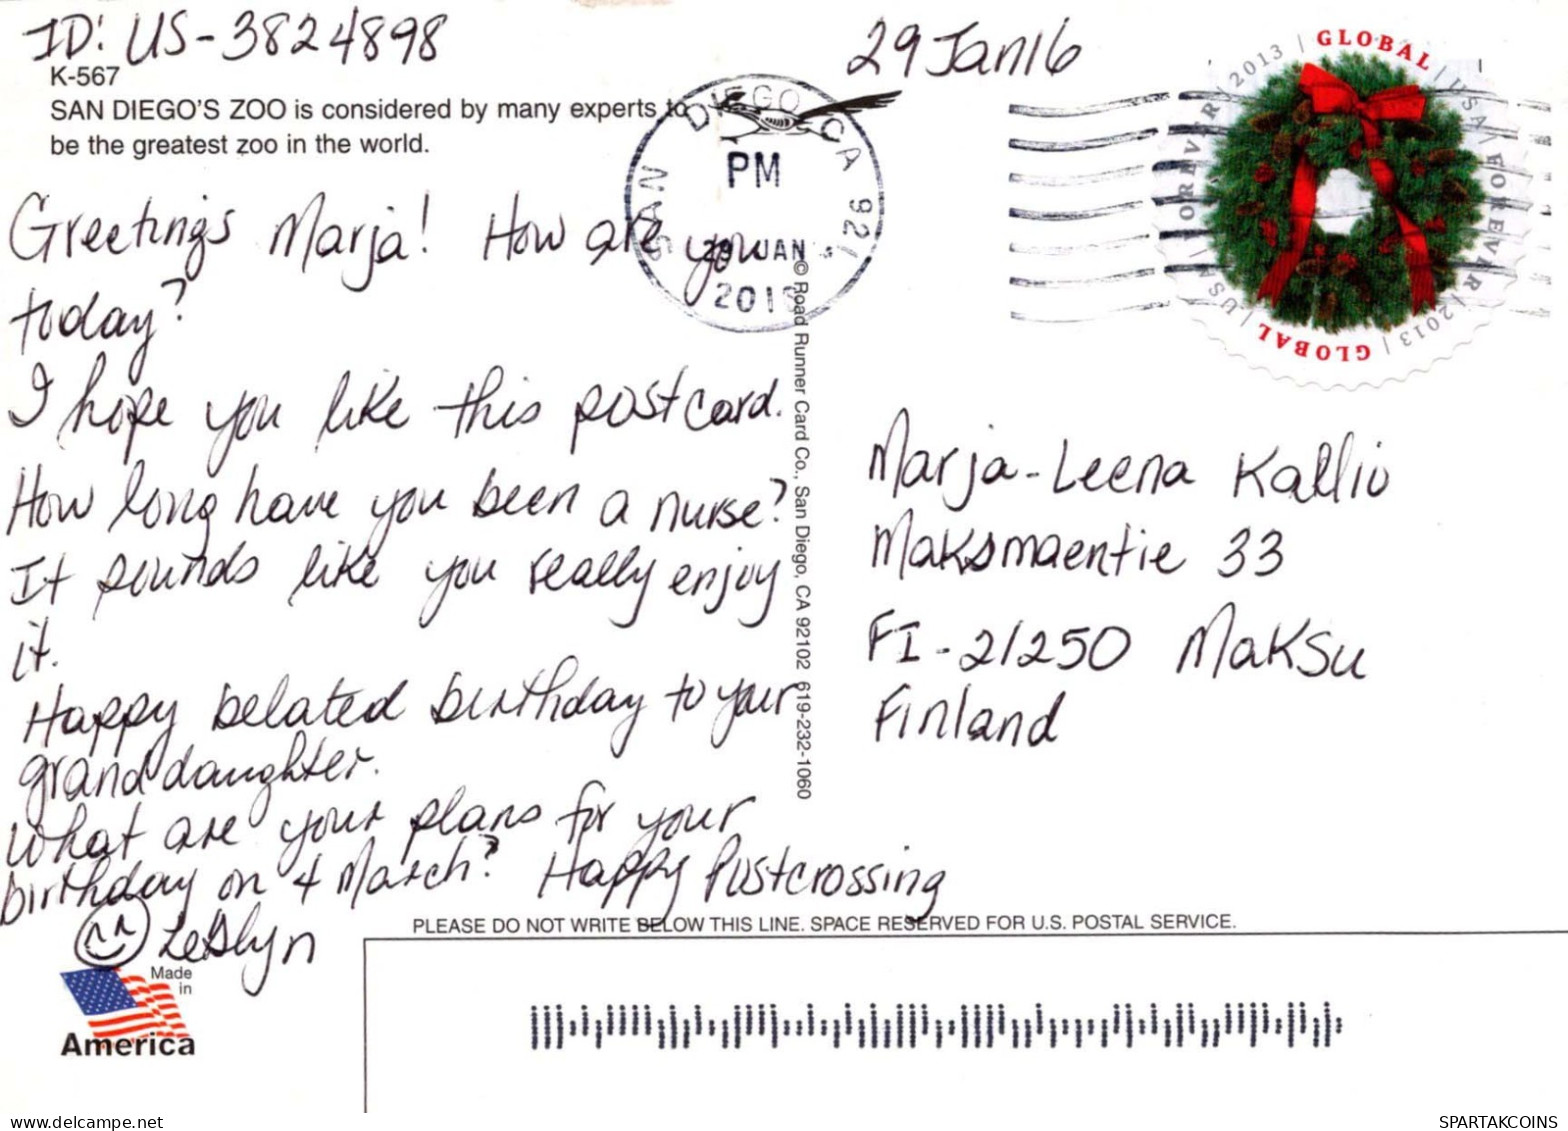 ID: US-3824898
29 Jan 16
K-567
SAN DIEGO'S ZOO is considered by many experts to
be the greatest zoo in the world.
SAN DIEGO CA 921
PM
JAN
GLOBAL | USA | FOREVER | 2013 | GLOBAL | USA | FOREVER | 2013 |
Greetings Marja! How are you
today?
I hope you like this postcard.
How long have you been a nurse?
It sounds like you really enjoy
it.
Happy belated birthday to your
granddaughter.
What are your plans for your
birthday on 4 March? Happy Postcrossing
Leslyn
© Road Runner Card Co., San Diego, CA 92102 619-232-1060
Marja-Leena Kallio
Maksmaentie 33
FI-21250 Maksu
Finland
PLEASE DO NOT WRITE BELOW THIS LINE. SPACE RESERVED FOR U.S. POSTAL SERVICE.
Made
in
America
www.delcampe.net
SPARTAKCOINS